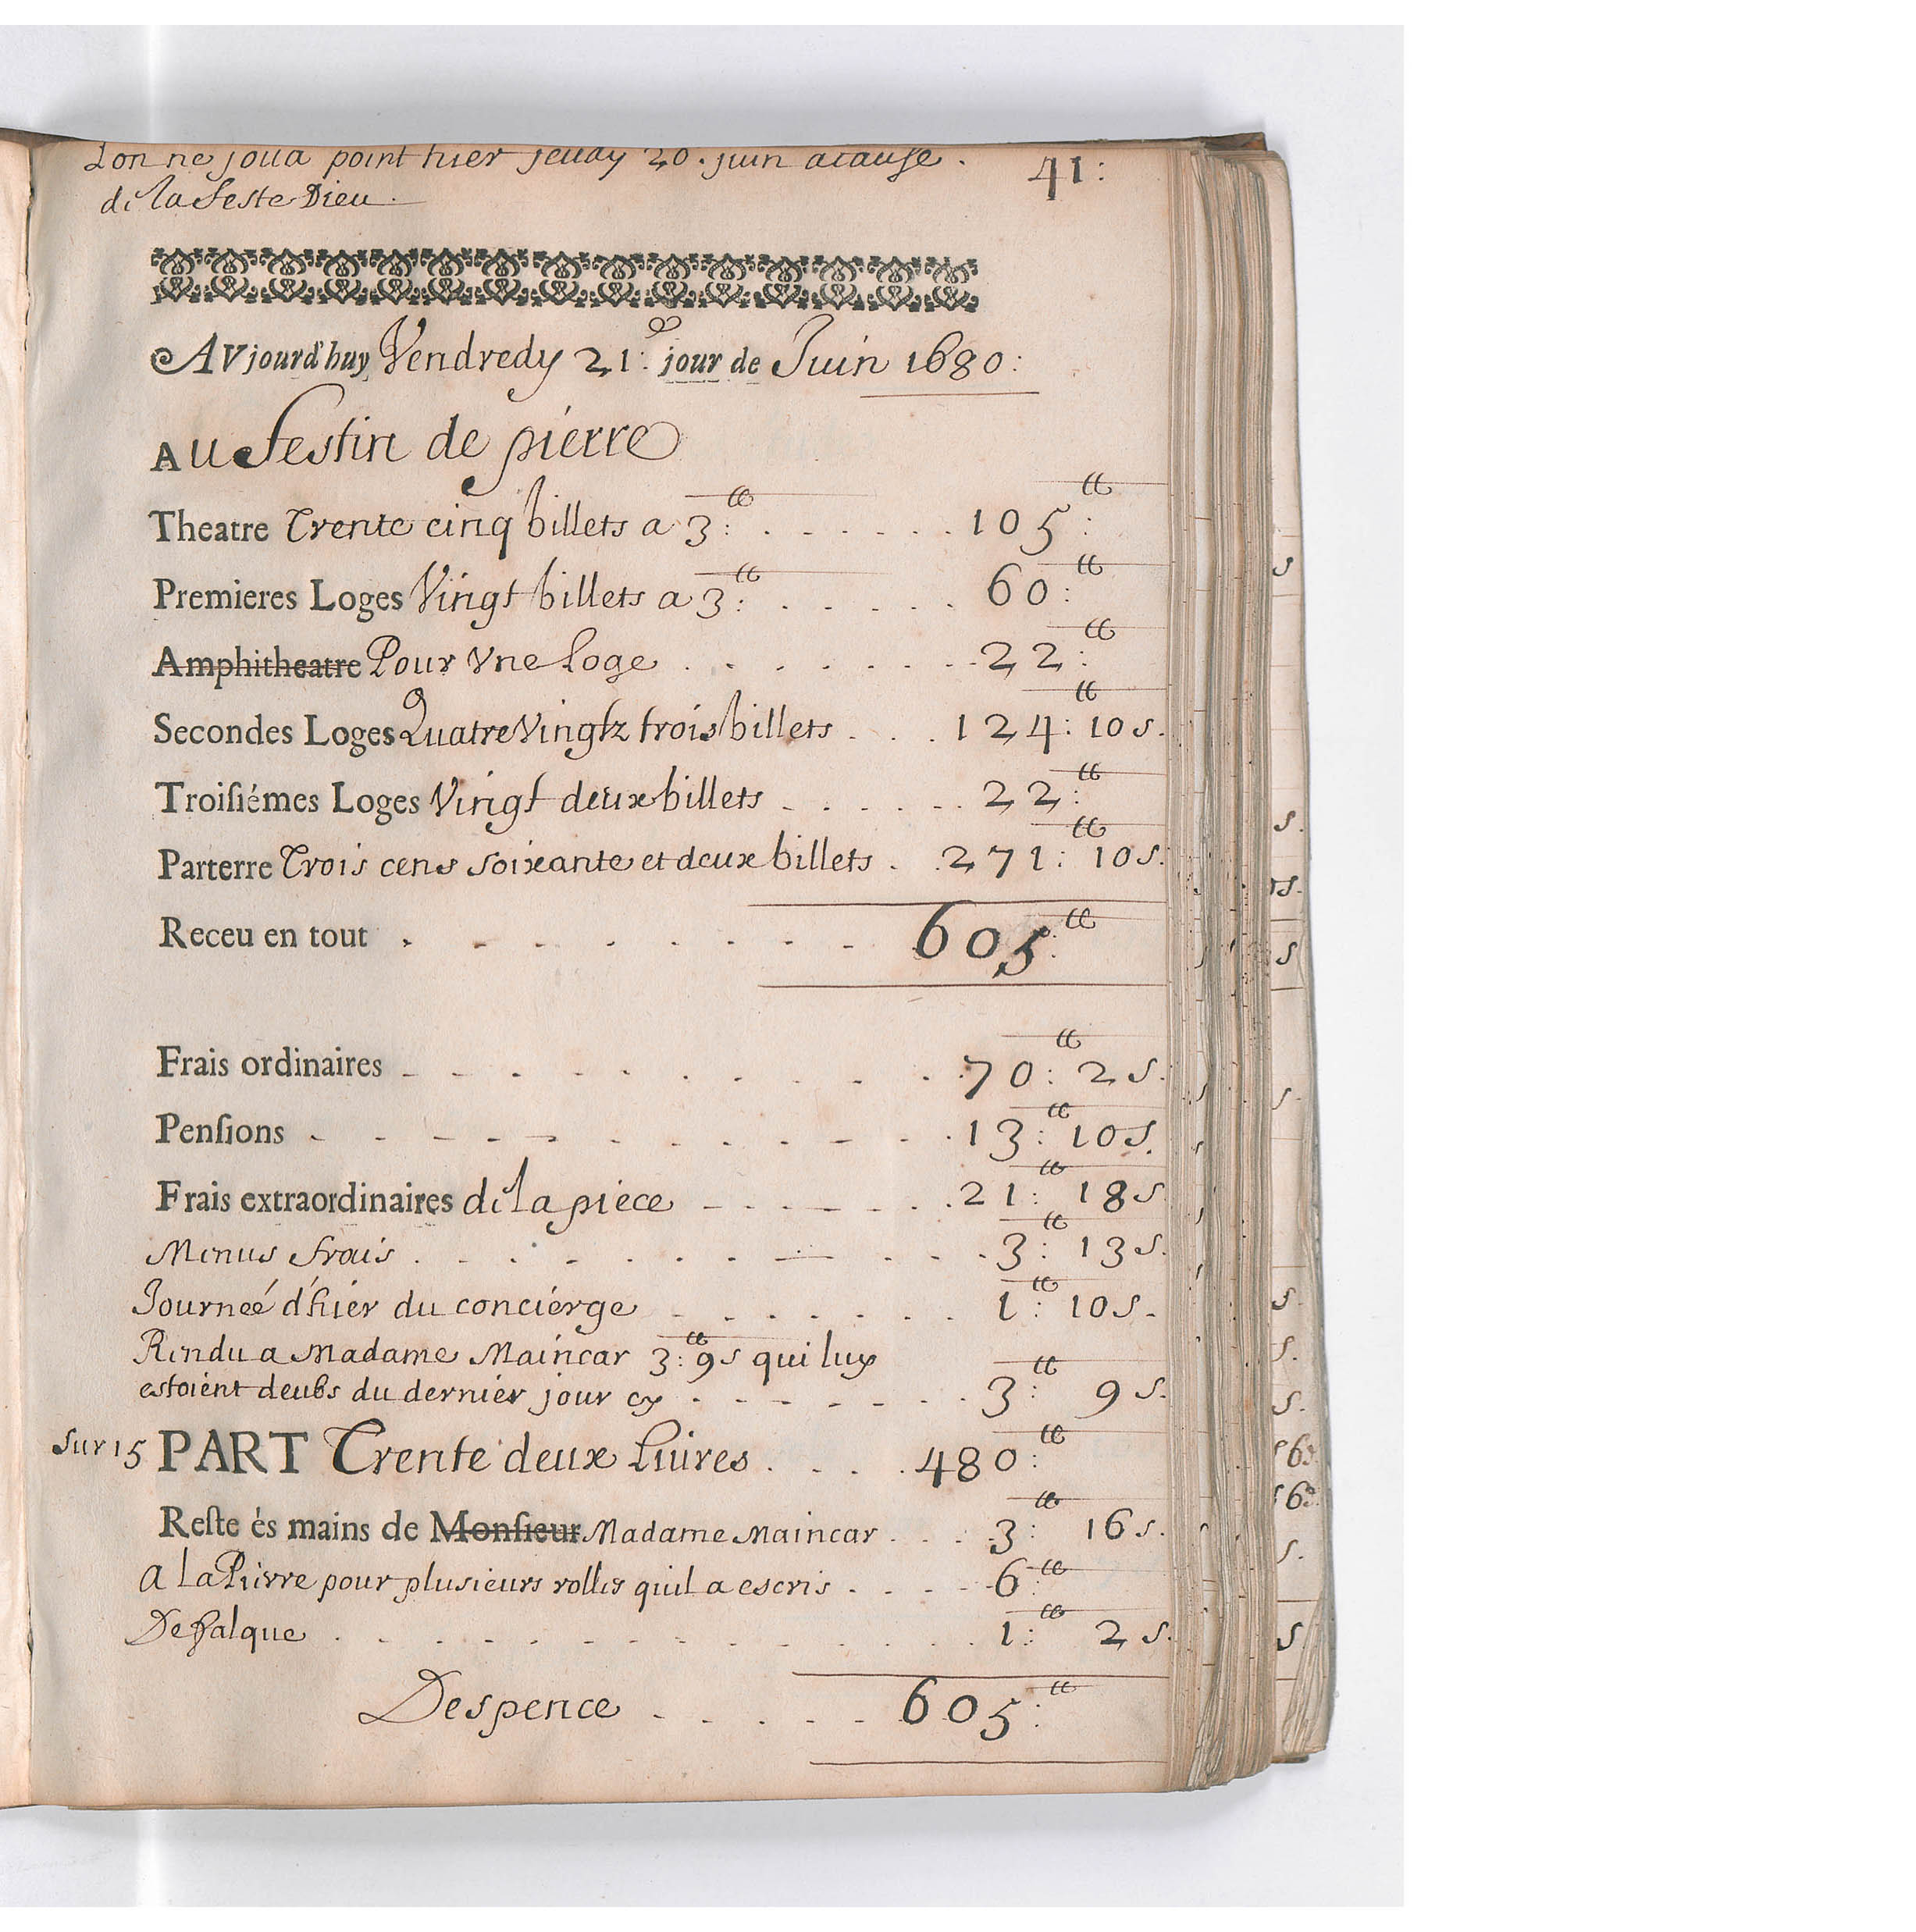 Lon ne joüa point hier jeudy 20. juin acause.
de la feste Dieu.
41:
AVjourd'huy Vendredy 21.e jour de Juin 1680:
AU festin de pierre
Theatre Trente cinq billets a 3:tt . . . . . . 105:tt
Premieres Loges Vingt billets a 3:tt . . . . . 60:tt
Amphitheatre Pour Vne Loge . . . . . . . . 22:tt
Secondes Loges Quatre Vingtz trois billets . . . 124:tt 10 s.
Troisiémes Loges Vingt deux billets . . . . . . 22:tt
Parterre Trois cens soixante et deux billets . . 271:tt 10 s.
Receu en tout . . . . . . . . . 605:tt
Frais ordinaires . . . . . . . . . . . 70:tt 2 s.
Pensions . . . . . . . . . . . . 13:tt 10 s.
Frais extraordinaires de la piece . . . . . . . 21:tt 18 s
Menus frais . . . . . . . . . . . . 3:tt 13 s.
Journeé d'hier du concierge . . . . . . . 1:tt 10 s.
Rendu a Madame Maincar 3:tt 9 s qui luy
estoient deubs du dernier jour cy . . . . . . . 3:tt 9 s.
Sur 15 PART Trente deux Liures . . . . 480:tt
Reste és mains de Monsieur Madame Maincar . . . 3:tt 16 s.
A La Pierre pour plusieurs rolles quil a escris . . . . 6:tt
Defalque . . . . . . . . . . . . . . 1:tt 2 s.
Despence . . . . . 605:tt